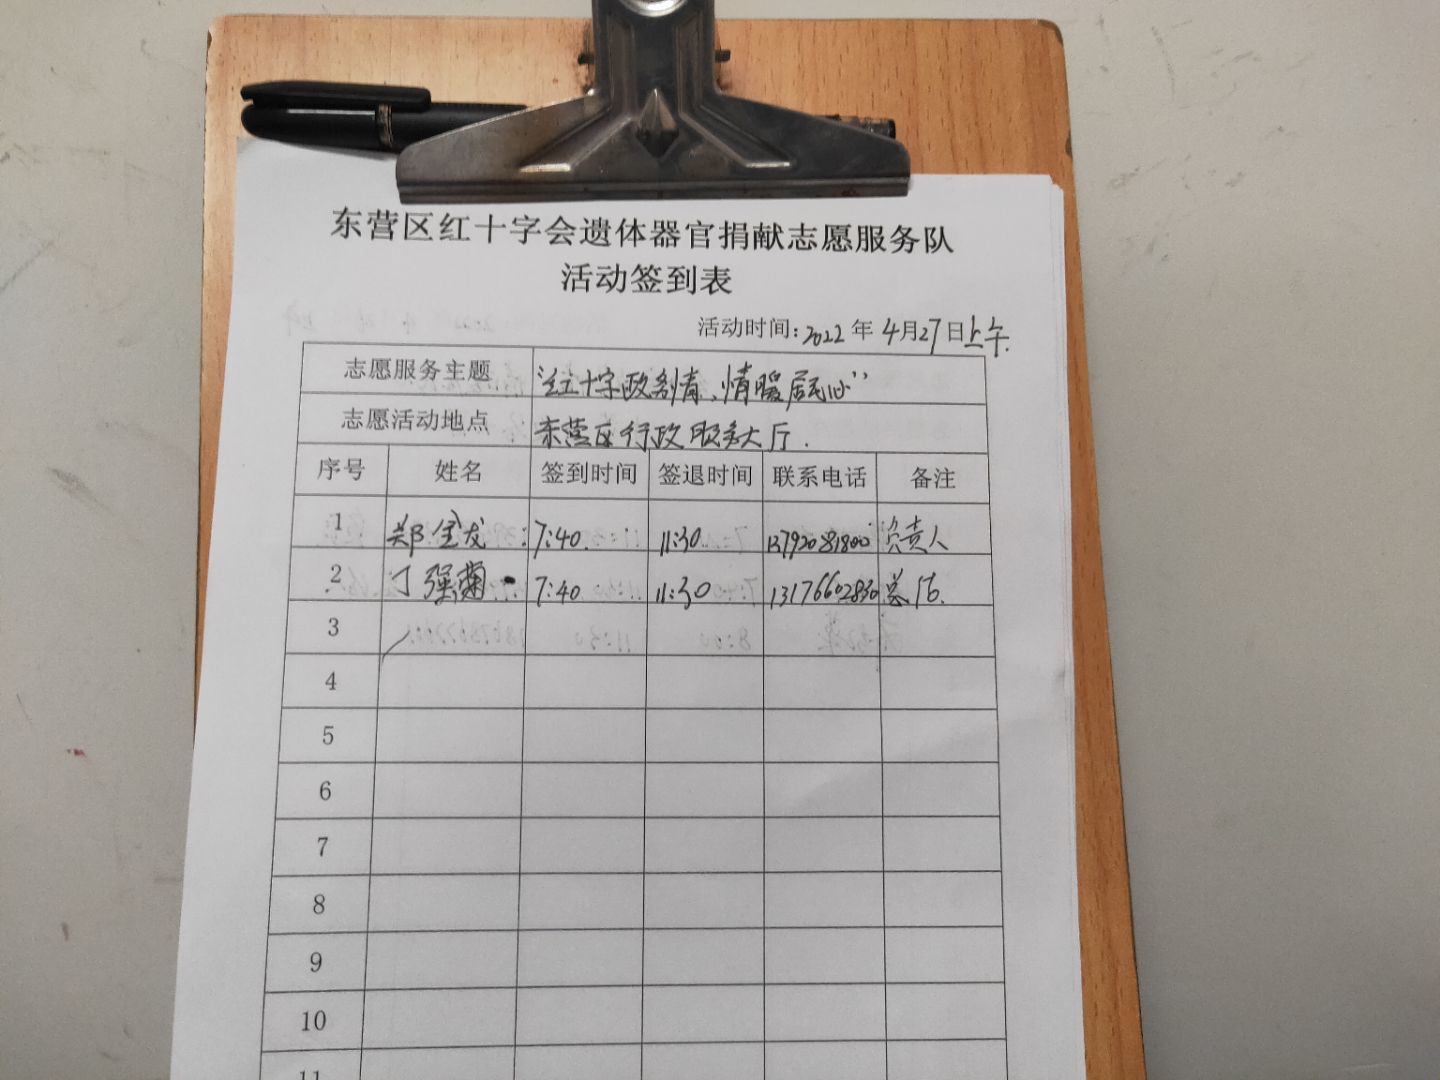 东营区红十字会遗体器官捐献志愿服务队
活动签到表
活动时间：2022年4月27日上午.
志愿服务主题 “红十字政务情、情暖居民心”
志愿活动地点 东营区行政服务大厅.
序号 姓名 签到时间 签退时间 联系电话 备注
1 郑金龙 7:40. 11:30 13792081800 负责人
2 丁强菊 7:40 11:30 13176602830
3
4
5
6
7
8
9
10
11